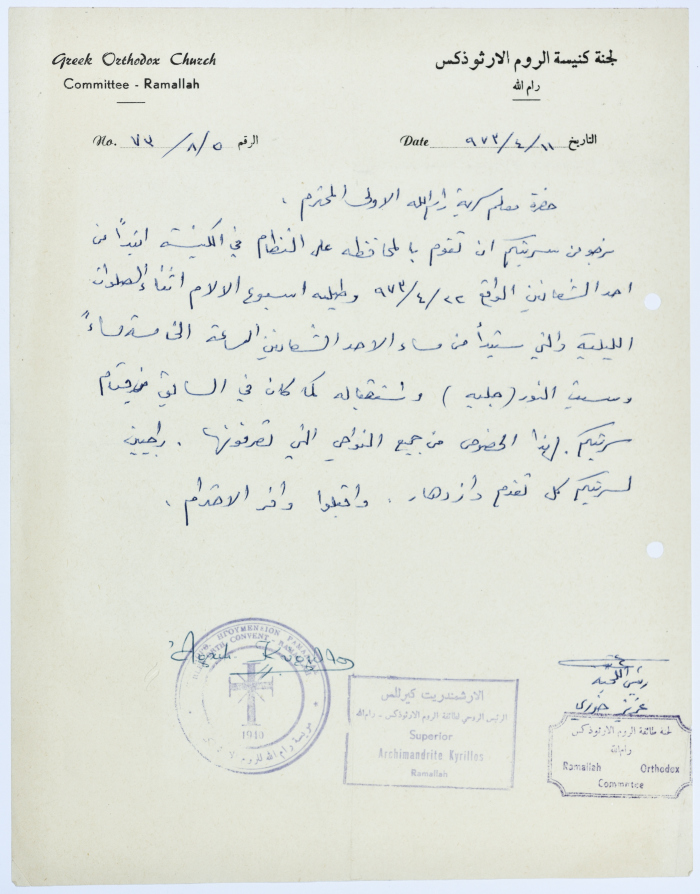 Greek Orthodox Church
Committee - Ramallah
لجنة كنيسة الروم الارثوذكس
رام الله
No. ٧٣/٨/٥ الرقم
Date ٩٧٣/٤/١١ التاريخ
حضرة معلم سرية رام الله الاولى المحترم .
نرجو من سريتكم ان تقوم بالمحافظه على النظام في الكنيسة ابتداً من
احد الشعانين الواقع ٩٧٣/٤/٢٢ وطيلة اسبوع الالام اثناء الصلوات
الليلية والتي ستبدأ من مساء الاحد الشعانين الساعة الخامسة مساءً
وسبت النور (جلبه) واستقباله كما كان في السابق من قيام
سريتكم بهذا الخصوص من جميع النواحي التي تعرفونها . راجين
لسريتكم كل تقدم وازدهار . واقبلوا وافر الاحترام .
رئيس اللجنة
عزيز خوري
1910
الارشمندريت كيرللس
الرئيس الروحي لطائفة الروم الارثوذكس - رام الله
Superior
Archimandrite Kyrillos
Ramallah
لجنة طائفة الروم الارثوذكس
رام الله
Ramallah Orthodox
Committee